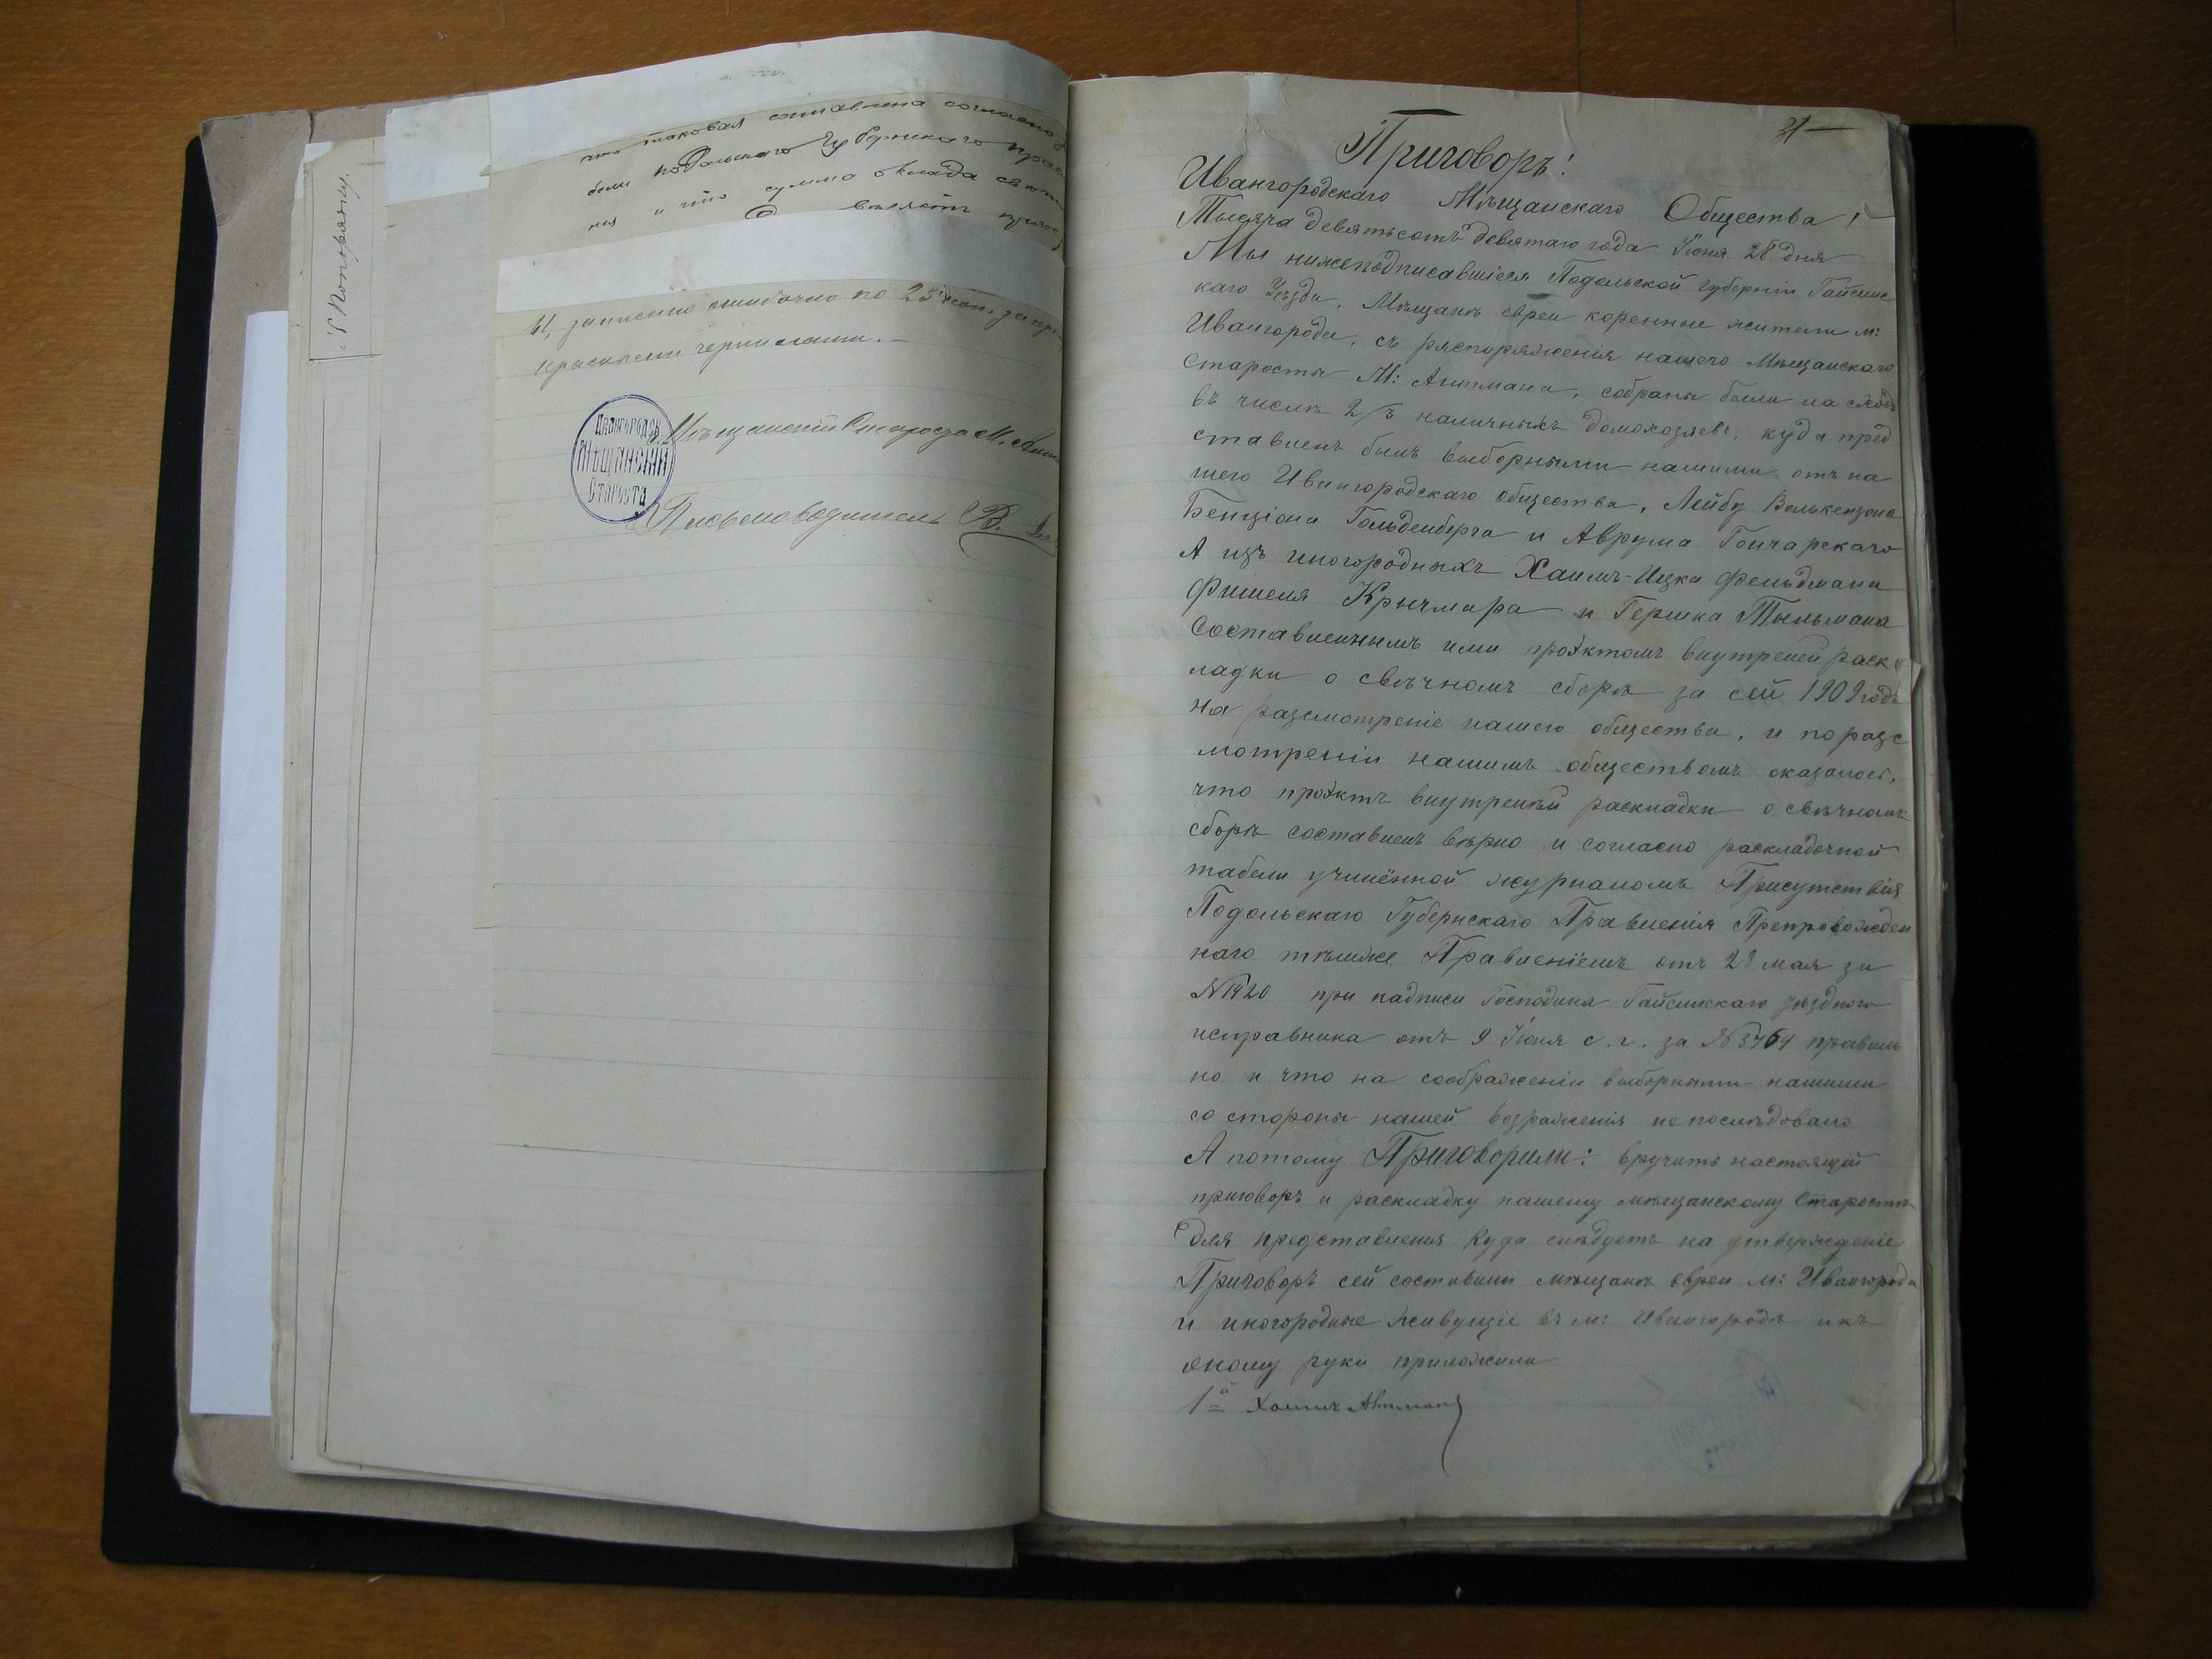 № Попорядку.
что таковая составлена согласно
бели Подольскаго Губернскаго Прав
ния и что сумма оклада
61, записано ошибочно по 25 коп.
красными чернилами.
Мѣщанскій Староста М.
Ивангородск
Мѣщанскій
Староста
Письмоводитель В.
21
Приговоръ!
Ивангородскаго Мѣщанскаго Общества!
Тысяча девятьсотъ девятаго года Іюня 28 дня
Мы нижеподписавшіеся Подольской губерніи Гайсинс
каго Уѣзда, Мѣщанѣ евреи коренные жители м:
Ивангорода, съ распоряженія нашего Мѣщанскаго
Старосты М: Антмана, собраны были на сходъ
въ числѣ 2/3 наличныхъ домохозяевъ, куда пред
ставленъ былъ выборными нашими отъ на
шего Ивангородскаго общества, Лейбу Волькензона
Бенціона Гольденберга и Аврума Гончарскаго
А изъ иногородныхъ Хаимъ-Ицка Фельдмана
Фишеля Крычмара и Гершка Тыльмана
Составленнымъ ими проэктомъ внутреней раск
ладки о свѣчномъ сборѣ за сей 1909 годъ
на разсмотреніе нашего общества, и по разс
мотреніи нашимъ обществомъ оказалось,
что проэктъ внутреннѣй раскладки о свѣчномъ
сборѣ составленъ вѣрно и согласно раскладочной
табели учинённой журналомъ Присутствія
Подольскаго Губернскаго Правленія Препровожден
наго тѣмже Правленіемъ отъ 28 мая за
№ 1420 при надписи Господина Гайсинскаго уѣзднаго
исправника отъ 9 Іюня с. г. за № 3464 правиль
но и что на соображеніи выборными нашими
со стороны нашей возраженія не послѣдовало
А потому Приговорили: вручить настоящій
приговоръ и раскладку нашему мѣщанскому Старостѣ
для представленія куда слѣдуетъ на утвержденіе
Приговоръ сей составили мѣщанѣ евреи м: Ивангорода
и иногородные живущіе въ м: Ивангородѣ и къ
оному руки приложили
1й Хаимъ Антманъ